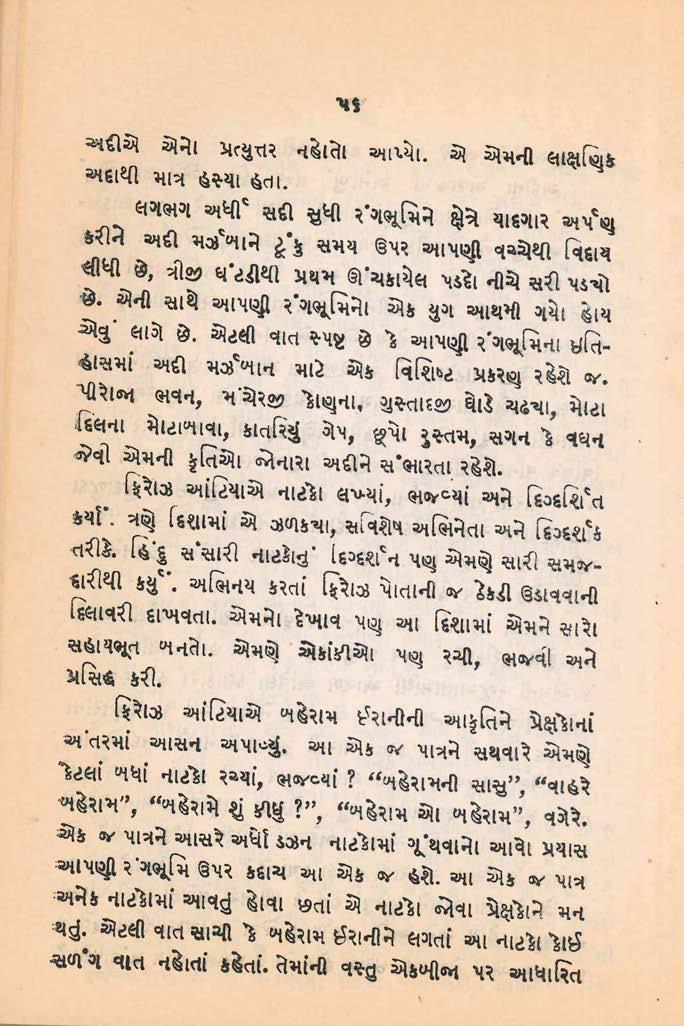 ૫૬
અદીએ એનો પ્રત્યુત્તર નહોતો આપ્યો. એ એમની લાક્ષણિક
અદાથી માત્ર હસ્યા હતા.
લગભગ અર્ધી સદી સુધી રંગભૂમિને ક્ષેત્રે યાદગાર અર્પણ
કરીને અદી મર્ઝબાને ટૂંકુ સમય ઉપર આપણી વચ્ચેથી વિદાય
લીધી છે, ત્રીજી ઘંટડીથી પ્રથમ ઊંચકાયેલ પડદો નીચે સરી પડચો
છે. એની સાથે આપણી રંગભૂમિનો એક યુગ આથમી ગયો હોય
એવું લાગે છે. એટલી વાત સ્પષ્ટ છે કે આપણી રંગભૂમિના ઇતિ-
હાસમાં અદી મર્ઝબાન માટે એક વિશિષ્ટ પ્રકરણ રહેશે જ.
પીરોજા ભવન, મંચેરજી કોણુના, ગુસ્તાદજી ઘોડે ચઢયા, મોટા
દિલના મોટાબાવા, કાતરિયું ગેપ, છૂપો રુસ્તમ, સગન કે વઘન
જેવી એમની કૃતિઓ જોનારા અદીને સંભારતા રહેશે.
ફિરોઝ આંટિયાએ નાટકો લખ્યાં, ભજવ્યાં અને દિગ્દર્શિત
કર્યાં. ત્રણે દિશામાં એ ઝળકયા, સવિશેષ અભિનેતા અને દિગ્દર્શક
તરીકે. હિંદુ સંસારી નાટકોનું દિગ્દર્શન પણ એમણે સારી સમજ-
દારીથી કર્યું. અભિનય કરતાં ફિરોઝ પોતાની જ ઠેકડી ઉડાવવાની
દિલાવરી દાખવતા. એમનો દેખાવ પણ આ દિશામાં એમને સારો
સહાયભૂત બનતો. એમણે એકાંકીઓ પણ રચી, ભજવી અને
પ્રસિદ્ધ કરી.
ફિરોઝ આંટિયાએ બહેરામ ઈરાનીની આકૃતિને પ્રેક્ષકોનાં
અંતરમાં આસન અપાવ્યું. આ એક જ પાત્રને સથવારે એમણે
કેટલાં બધાં નાટકો રચ્યાં, ભજવ્યાં ? “બહેરામની સાસુ”, “વાહરે
બહેરામ”, “બહેરામે શું કીધુ ?”, “બહેરામ ઓ બહેરામ”, વગેરે.
એક જ પાત્રને આસરે અર્ધો ડઝન નાટકોમાં ગૂંથવાનો આવો પ્રયાસ
આપણી રંગભૂમિ ઉપર કદાચ આ એક જ હશે. આ એક જ પાત્ર
અનેક નાટકોમાં આવતું હોવા છતાં એ નાટકો જોવા પ્રેક્ષકોને મન
થતું. એટલી વાત સાચી કે બહેરામ ઈરાનીને લગતાં આ નાટકો કોઈ
સળંગ વાત નહોતાં કહેતાં. તેમાંની વસ્તુ એકબીજા પર આધારિત